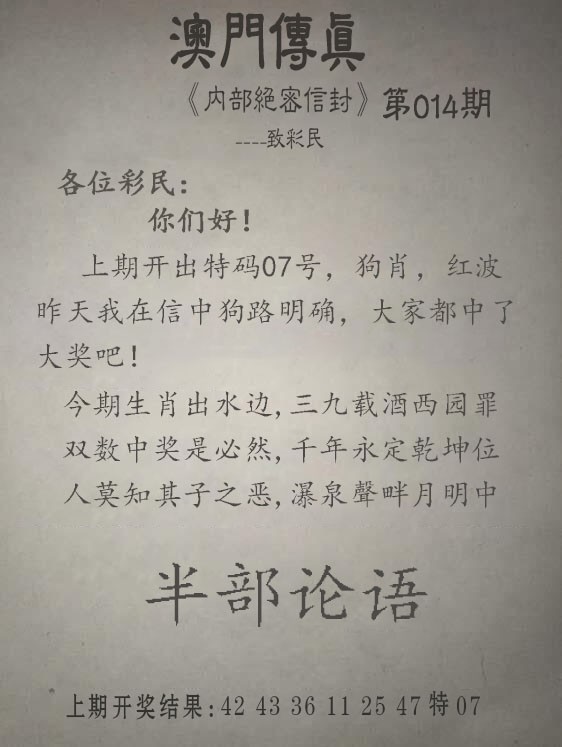 澳門傳眞
《内部絕密信封》第014期
----致彩民
各位彩民：
你们好！
上期开出特码07号，狗肖，红波
昨天我在信中狗路明确，大家都中了
大奖吧！
今期生肖出水边,三九载酒西园罪
双数中奖是必然,千年永定乾坤位
人莫知其子之恶,瀑泉聲畔月明中
半部论语
上期开奖结果:42 43 36 11 25 47特07